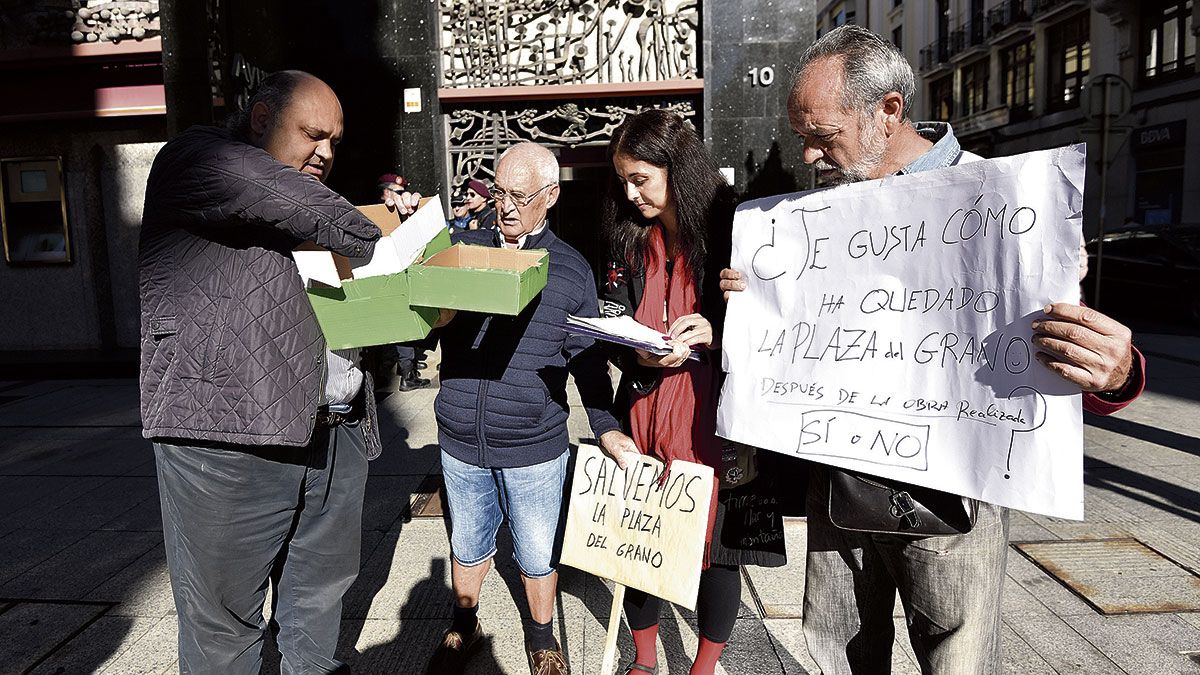 Ayun
10
BBVA
¿TE GUSTA CÓMO
HA QUEDADO
LA PLAZA del GRANO
DESPUÉS DE LA OBRA Realizada
SÍ o NO ?
SALVEMOS
LA PLAZA
DEL GRANO